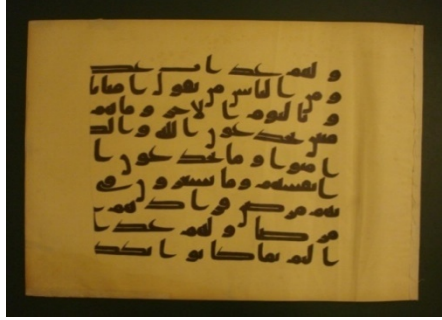 و لهم عذاب عظ
و من الناس من يقول امنا با
و باليوم الاخر و ما هم
يخدعون الله و الذ
امنوا و ما يخدعون ا
انفسهم و ما يشعرون في
بهم مرض فزادهم ا
مرضا و لهم عذا
اليم بما كانوا يكذ